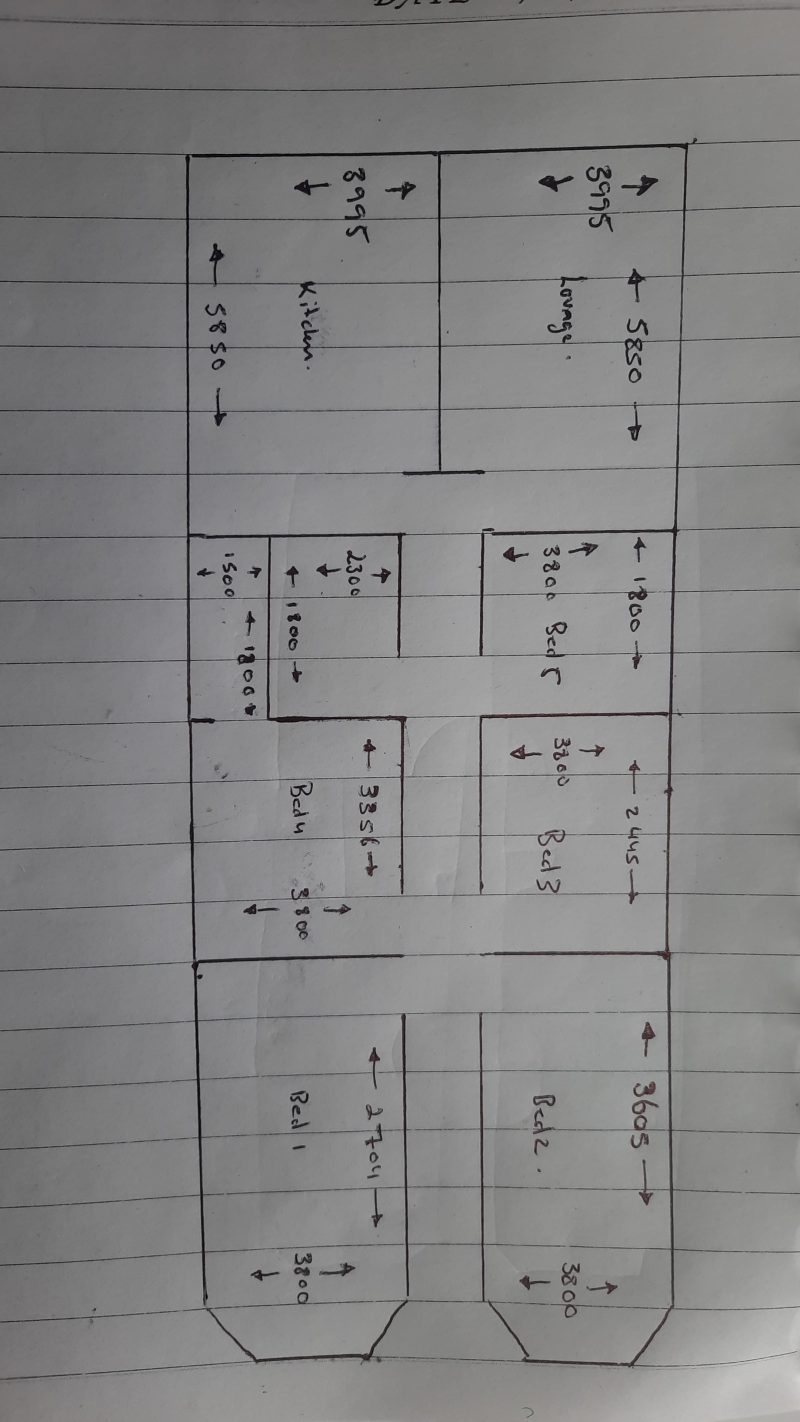 DATE
3995
5850
Lounge.
3995
Kitchen.
5850
1800
3800 Bed 5
2300
1800
1500
1800
2445
3800 Bed 3
3356
Bed 4
3800
3605
Bed 2.
3800
2704
Bed 1
3800